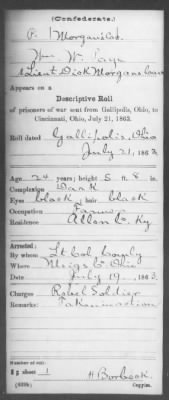 (Confederate.)
P. | Morgan's Cav.
Wm. W. Page
Lieut. Dick Morgans
Appears on a
Descriptive Roll
of prisoners of war sent from Gallipolis, Ohio, to
Cincinnati, Ohio, July 21, 1863.
Roll dated Gallipolis, Ohio
July 21, 1863.
Age 24 years; height 5 ft. 8 in.
Complexion Dark
Eyes black; hair black
Occupation Farmer
Residence Allen Co. Ky
Arrested:
By whom Lt Col
Where Meigs Co Ohio
When July 19, 1863.
Charges Rebel Soldier
Remarks: Taken in action
Number of roll:
8; sheet 1
(639b)
Copyist.